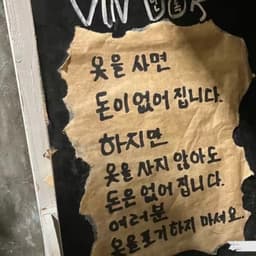 옷을 사면
돈이 없어 집니다.
하지만
옷을 사지 않아도
돈은 없어 집니다.
여러분
옷을 포기하지 마세요..